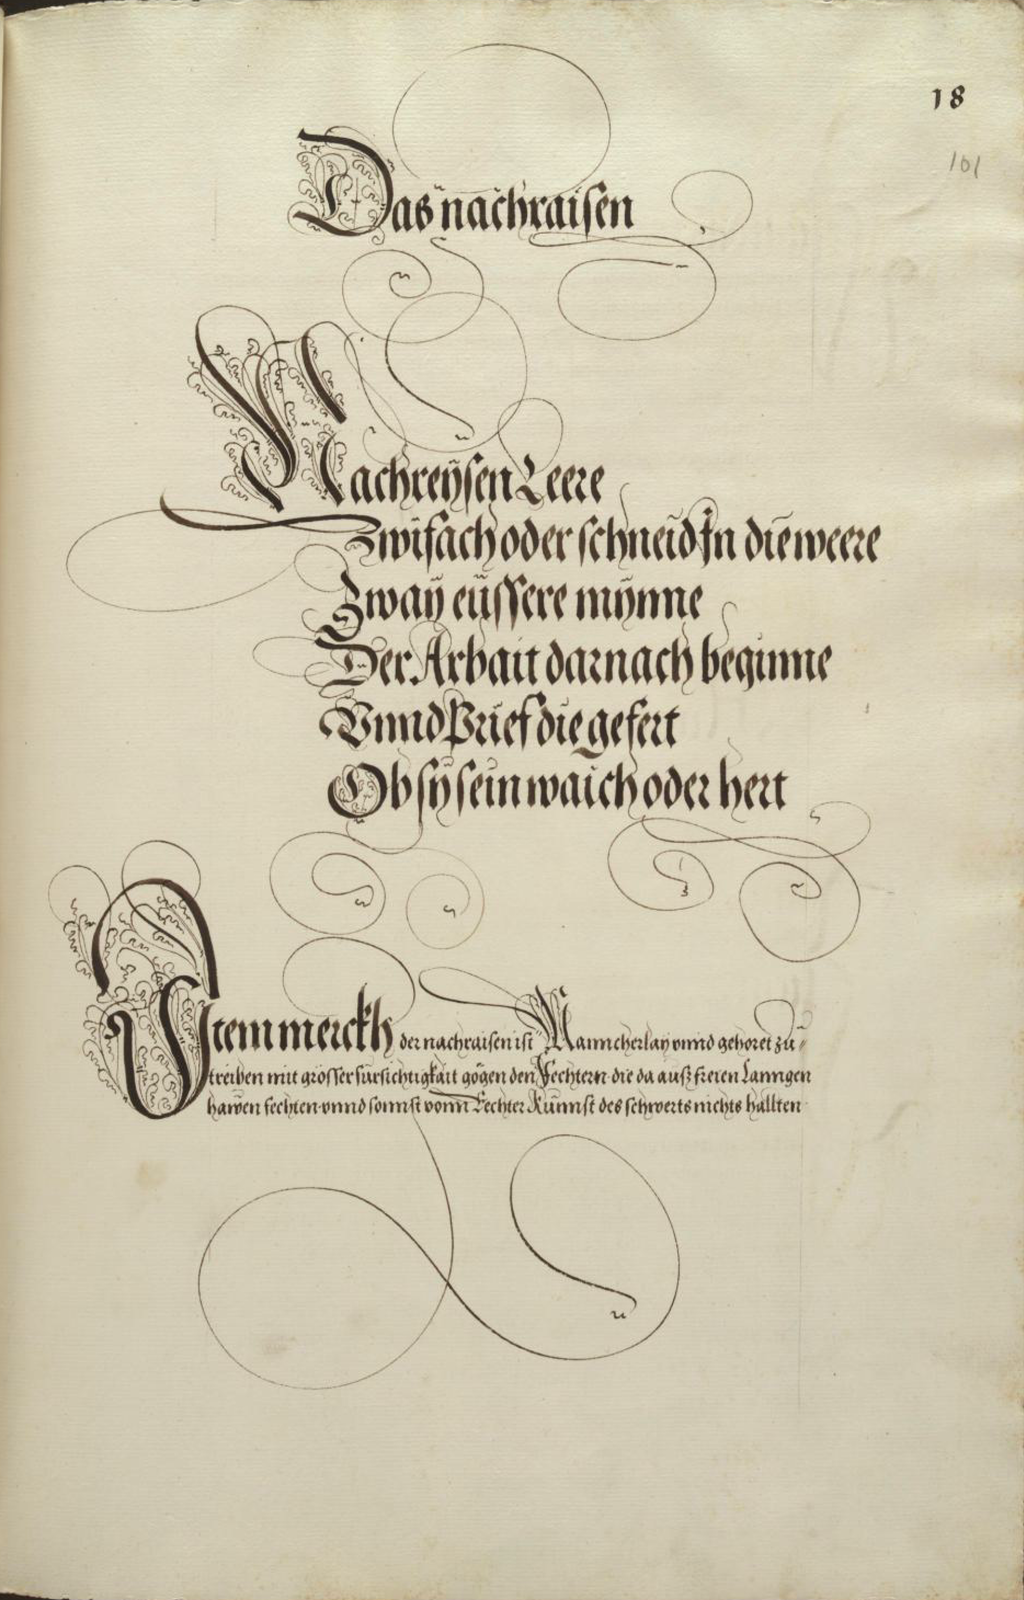 18
101
Das nachraisen
Nachreÿsen Leere
Zwifach oder schneid In die weere
Zwaÿ eüssere mÿnne
Der Arbait darnach beginne
Vnnd Prief die gefert
Ob sÿ sein waich oder hert
Item merckh der nachraisen ist Manncherlay vnnd gehoret zů-
treiben mit grosser fürsichtigkait gögen den Fechtern die da auß freien Lanngen
hawen fechten vnnd sonnst vonn Rechter Kunnst des schwerts nichts hallten